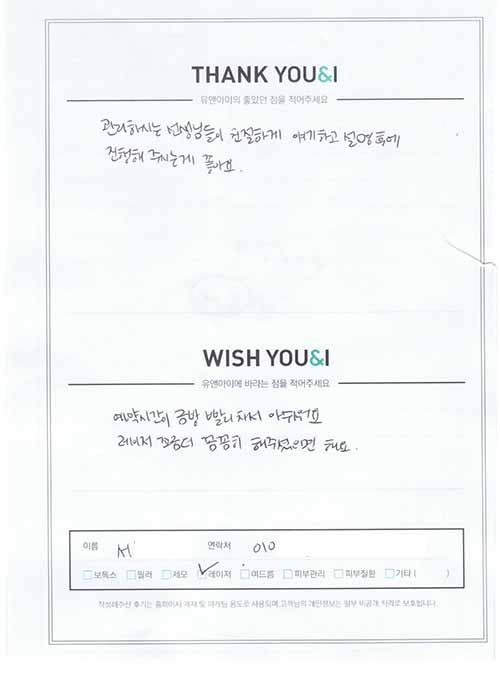 THANK YOU&I
유앤아이의 좋았던 점을 적어주세요
관리하시는 선생님들이 친절하게 얘기하고 설명후에
진행해 주시는게 좋아요.
WISH YOU&I
유앤아이에 바라는 점을 적어주세요
예약시간이 금방 빨리차서 아쉬워요
레이저 조금더 꼼꼼히 해주셨으면 해요.
이름 서 연락처 010
보톡스 필러 제모 레이저 여드름 피부관리 피부질환 기타 ( )
작성해주신 후기는 홈페이지 게재 및 마케팅 용도로 사용되며 고객님의 개인정보는 일부 비공개 처리로 보호됩니다.